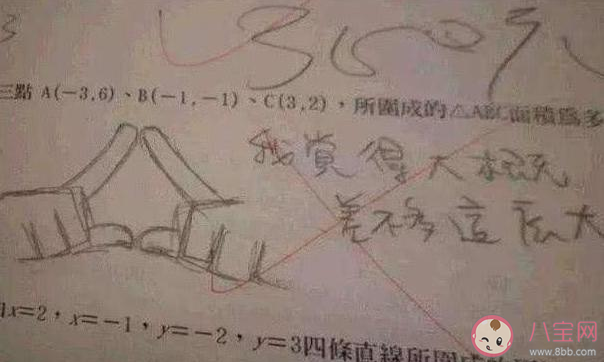 3
三點 A(-3,6)、B(-1,-1)、C(3,2)，所圍成的△ABC面積為多
我覺得大概
差不多這么大
x=2，x=-1，y=-2，y=3四條直線所圍
八宝网
www.8bb.com